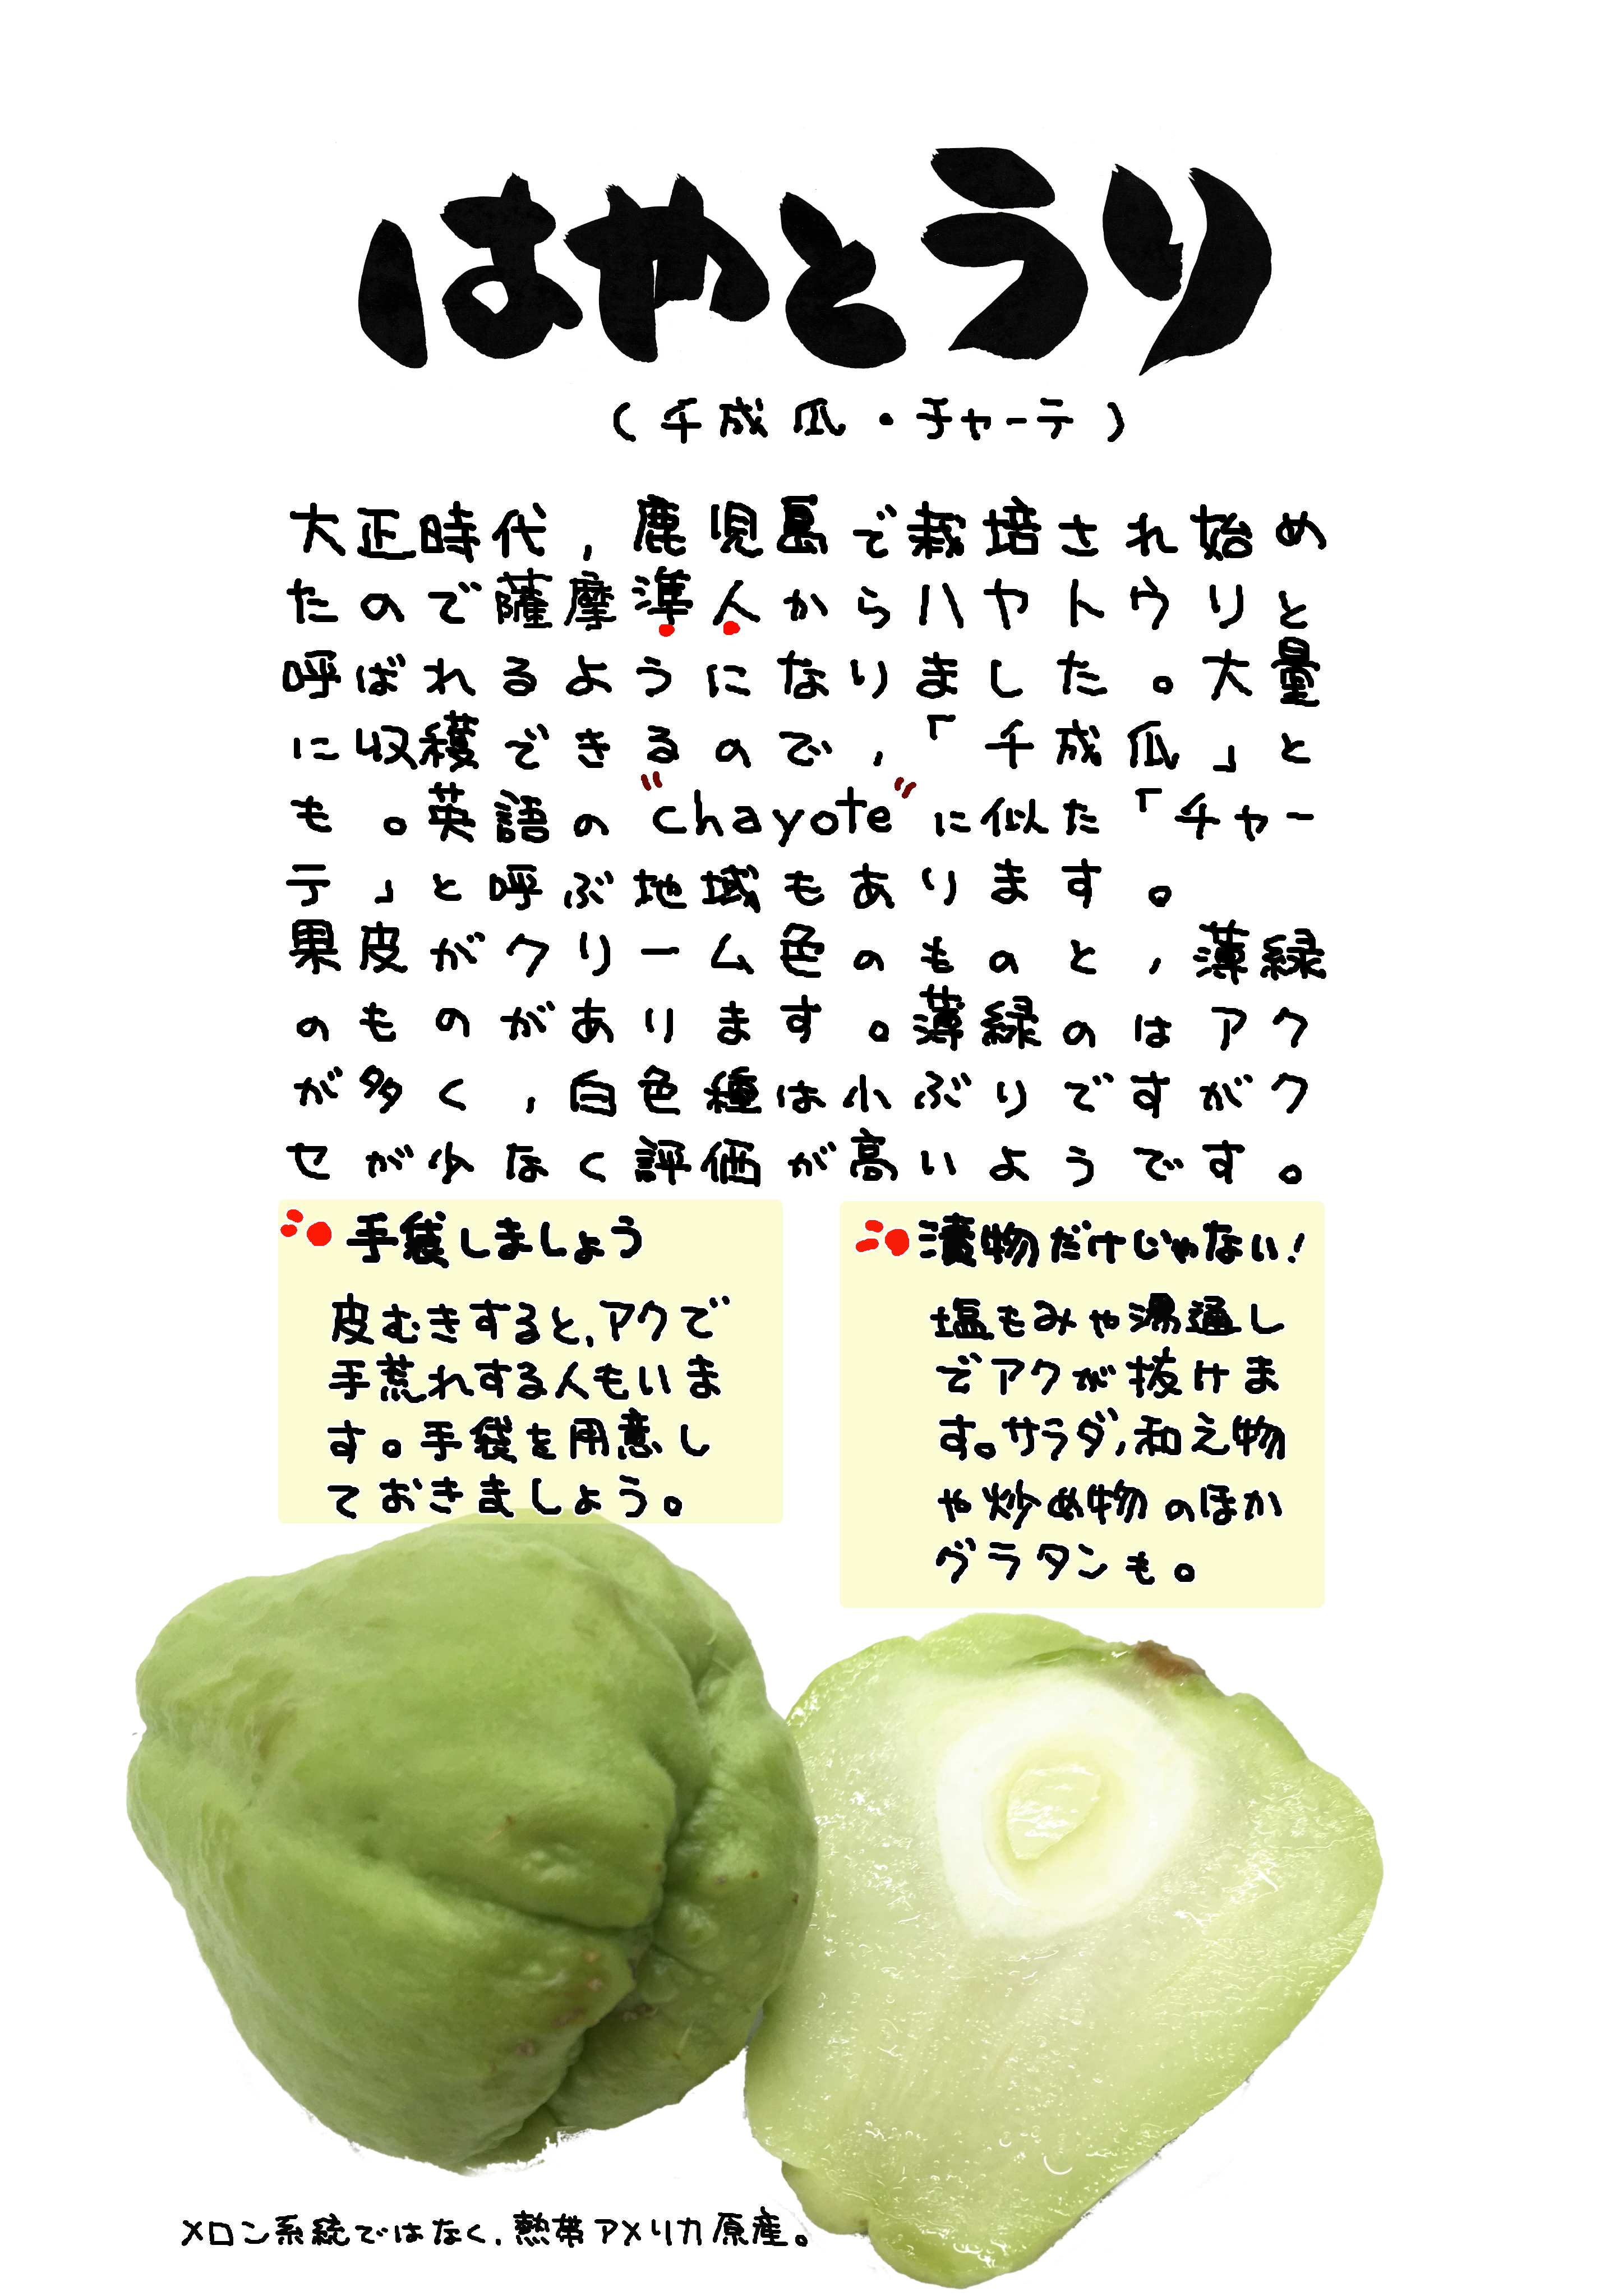 はやとうり
(千成瓜・チャーテ)
大正時代,鹿児島で栽培され始め
たので薩摩準人からハヤトウリと
呼ばれるようになりました。大量
に収穫できるので,「千成瓜」と
も。英語の"chayote"に似た「チャー
テ」と呼ぶ地域もあります。
果皮がクリーム色のものと,薄緑
のものがあります。薄緑のはアク
が多く,白色種は小ぶりですがク
セが少なく評価が高いようです。
手袋しましょう
皮むきすると,アクで
手荒れする人もいま
す。手袋を用意し
ておきましょう。
漬物だけじゃない!
塩もみや湯通し
でアクが抜けま
す。サラダ,和え物
や炒め物のほか
グラタンも。
メロン系統ではなく,熱帯アメリカ原産。